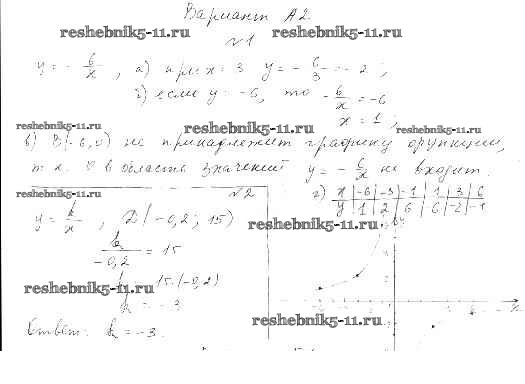 Вариант А2.
reshebnik5-11.ru reshebnik5-11.ru
№1
y = - 6/x , а) при x = 3 y = - 6/3 = - 2 ;
б) если y = -6, то - 6/x = -6
x = 1 ;
reshebnik5-11.ru reshebnik5-11.ru
в) B(-6,0) не принадлежит графику функции,
т.к. 0 в область значений y = - 6/x не входит.
reshebnik5-11.ru
№2
г) x | -6 | -3 | -1 | 1 | 3 | 6
y | 1 | 2 | 6 | 6 | -2 | -1
y = k/x , D(-0,2; 15)
reshebnik5-11.ru
k/-0,2 = 15
15·(-0,2)
reshebnik5-11.ru
k = -3
reshebnik5-11.ru
Ответ: k = -3.
y
x